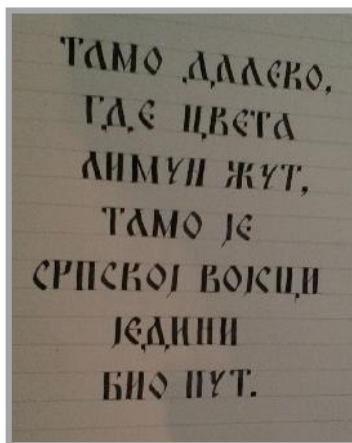 ТАМО ДАЛЕКО,
ГДЕ ЦВЕТА
ЛИМУН ЖУТ,
ТАМО ЈЕ
СРПСКОЈ ВОЈСЦИ
ЈЕДИНИ
БИО ПУТ.